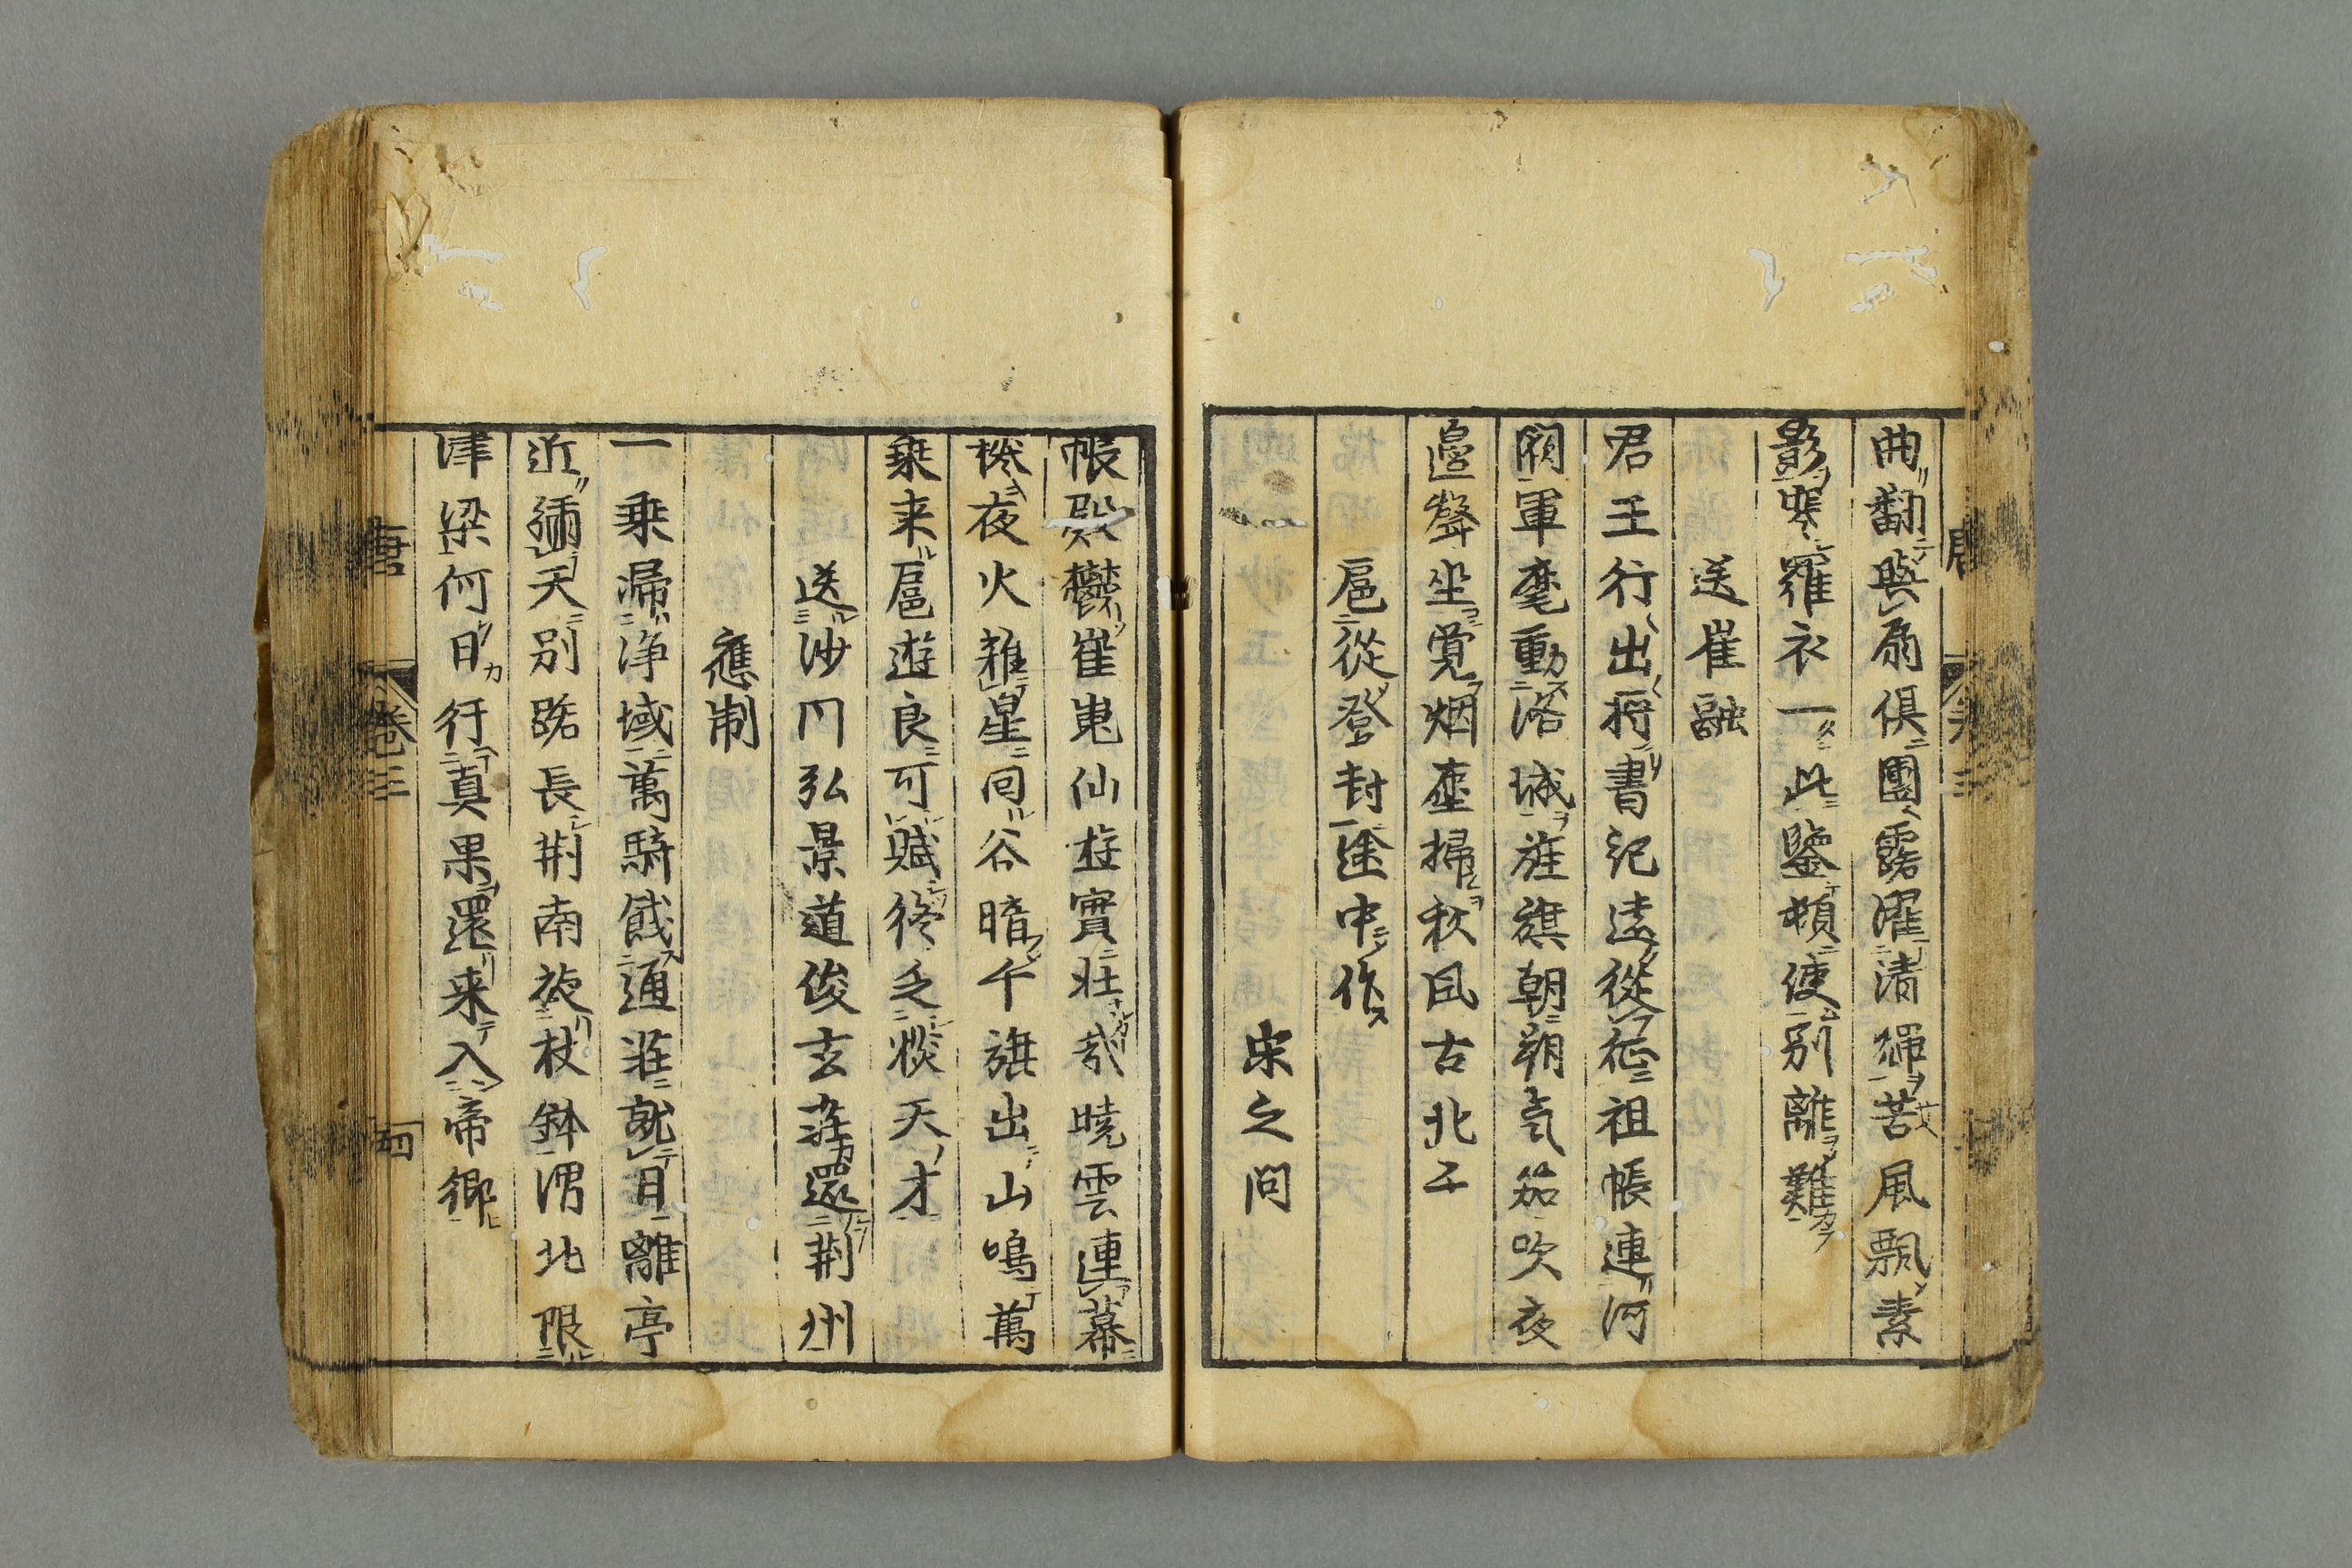 曲翻與扇俱團露濯清輝苦風飄素
影寒羅衣一此鑒頼使別離難
送崔融
君王行出將書記遠從征祖帳連河
闕軍麾動洛城旌旗朝朔氣笳吹夜
邊聲坐覺烟塵掃秋風古北平
扈從登封途中作
宋之問
帳殿欝崔嵬仙遊實壯哉曉雲連幕
捲夜火雜星囘谷暗千旗出山鳴萬
乗来扈遊良可賦終乏掞天才
送沙門弘景道俊玄莊還荆州
應制
一乗歸浄域萬騎餞通莊就日離亭
近弥天別路長荆南旋杖鉢渭北限
津梁何日行真果還来入帝郷
唐 巻三 四